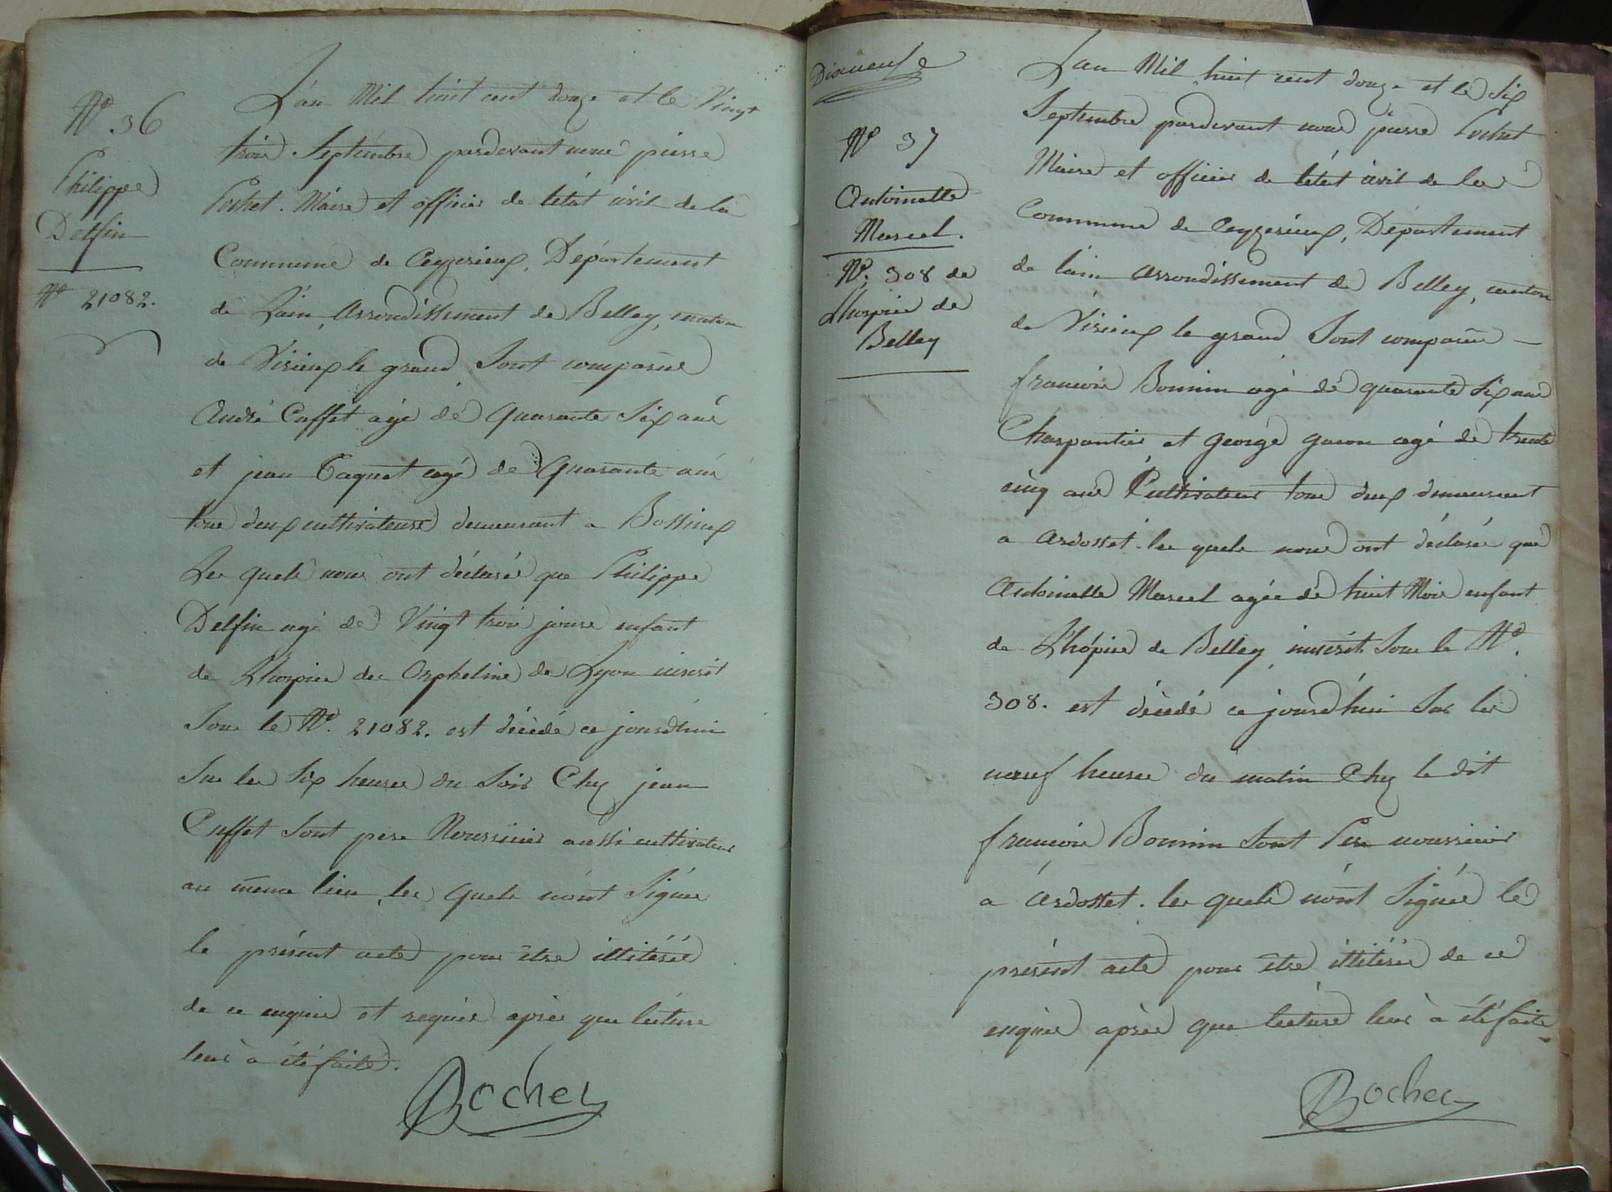 N.o 36
Philippe
Delfin
N.o 21082.
L'an Mil huit cent douze et le Vingt
trois Septembre pardevant nous pierre
Pochet Maire et officier de létat civil de la
Commune de Ceyzerieux, Département
de Lain, Arrondissement de Belley, canton
de Virieux le grand Sont comparus
André Cuffet agé de Quarante Six ans
et jean Taquet agé de Quarante ans
tous deux cultivateurs demeurant a Bossieux
Les quels nous ont déclaré que Philippe
Delfin agé de Vingt trois jours enfant
de L'hospice des Orphelins de Lyon inscrit
Sous le N.o 21082. est décédé ce jourd'hui
Sur les Six heures du Soir Chez jean
Cuffet Sont pere Nourricier aussi cultivateur
au même lieu, les quels n'ont Signés
le présent acte pour être illitérés
de ce enquis et requis après que lécture
leur à été faite.
Bochet
Dixneuf
N.o 37
Antoinette
Marcel.
N.o 308 de
L'hospice de
Belley
L'an Mil huit cent douze et le Six
Septembre pardevant nous pierre Pochet
Maire et officier de létat civil de la
Commune de Ceyzerieux, Département
de lain arrondissement de Belley, canton
de Virieux le grand Sont comparus
francois Bonnin agé de quarante Six ans
Charpantier et george agé de trente
cinq ans Cultivateur tous deux demeurant
a Ardosset. les quels nous ont déclarés que
Antoinette Marcel agée de huit Mois enfant
de L'hôpice de Belley, inscrit Sous le N.o
308. est décédé ce jourd'hui Sur les
neuf heures du matin Chez le dit
francois Bonnin Sont Pere nourricier
a Ardosset. les quels n'ont Signés le
présent acte pour être illitérés de ce
enquis après que lecture leur à été faite
Bochet